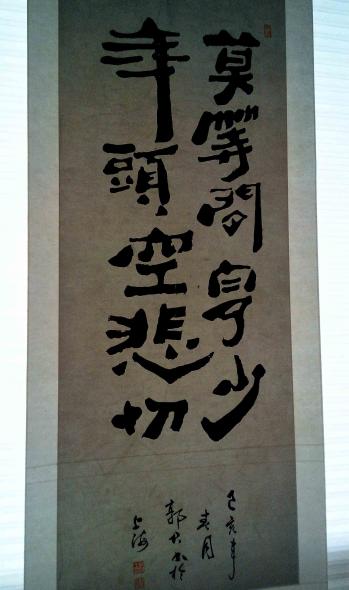 莫等閒白了少
年頭空悲切
己亥年
春月
郭
上海